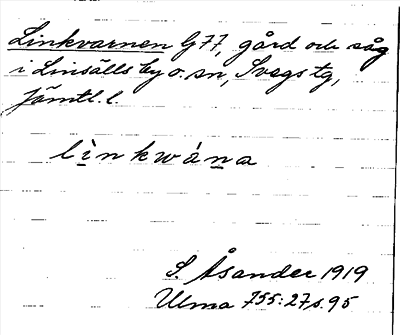 Linkvarnen G77, gård och såg
i Linsälls by o. sn, Svegs tg,
Jämtl. l.
lìnkwá̱ṉa
S. Åsander 1919
Ulma 755:27 s. 95